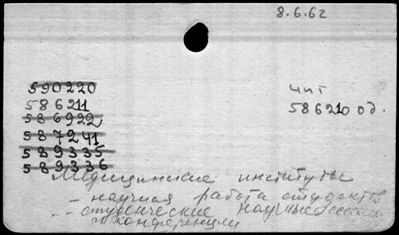 8.6.62
590220
586211
586922
587241
589335
589336
чит
586210 од.
Медицинские институты
- научная работа студентов
- студенческие научные
и конференции